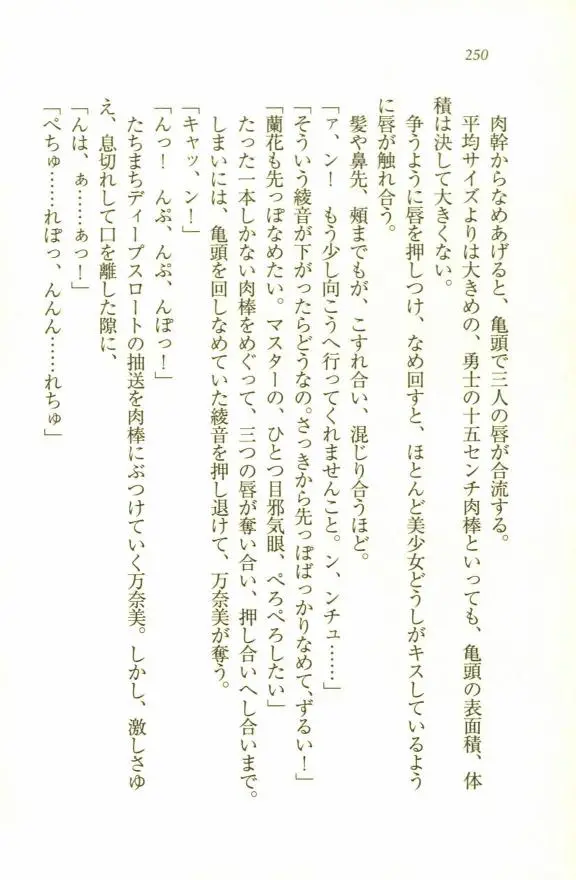 250
肉幹からなめあげると、亀頭で三人の唇が合流する。
平均サイズよりは大きめの、勇士の十五センチ肉棒といっても、亀頭の表面積、体
積は決して大きくない。
争うように唇を押しつけ、なめ回すと、ほとんど美少女どうしがキスしているよう
に唇が触れ合う。
髪や鼻先、頬までもが、こすれ合い、混じり合うほど。
「ァ、ン！　もう少し向こうへ行ってくれませんこと。ン、ンチュ……」
「そういう綾音が下がったらどうなの。さっきから先っぽばっかりなめて、ずるい！」
「蘭花も先っぽなめたい。マスターの、ひとつ目邪気眼、ぺろぺろしたい」
たった一本しかない肉棒をめぐって、三つの唇が奪い合い、押し合いへし合いまで。
しまいには、亀頭を回しなめていた綾音を押し退けて、万奈美が奪う。
「キャッ、ン！」
「んっ！　んぷ、んぷ、んぽっ！」
たちまちディープスロートの抽送を肉棒にぶつけていく万奈美。しかし、激しさゆ
え、息切れして口を離した隙に、
「んは、ぁ……ぁっ！」
「ぺちゅ……れぽっ、んんん……れちゅ」